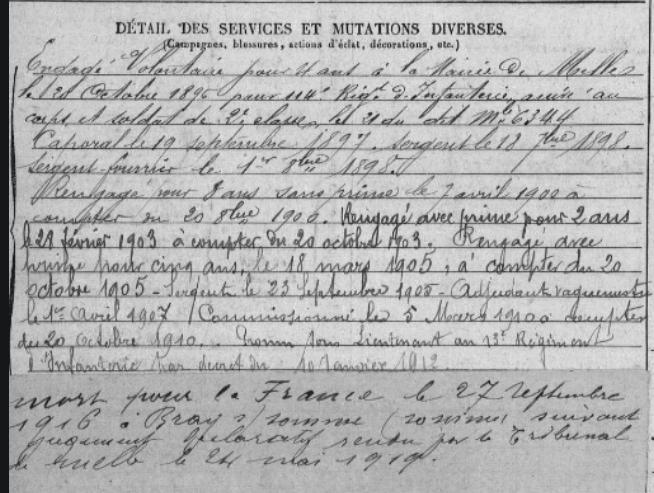 DÉTAIL DES SERVICES ET MUTATIONS DIVERSES.
(Campagnes, blessures, actions d'éclat, décorations, etc.)
Engagé Volontaire pour 4 ans à la Mairie de Melle
le 20 Octobre 1896 pour 114e Régt d'Infanterie, arrivé au
corps et soldat de 2e classe, le 21 du dit Mle 6344
Caporal le 19 septembre 1897. Sergent le 18 7bre 1898.
Sergent fourrier le 1er 8bre 1898.
Rengagé pour 3 ans sans prime le 7 avril 1900 à
compter du 20 8bre 1900. Rengagé avec prime pour 2 ans
le 28 février 1903 à compter du 20 octobre 1903. Rengagé avec
prime pour cinq ans, le 18 mars 1905, à compter du 20
octobre 1905 - Sergent le 23 Septembre 1905 - Adjudant vaguemestre
le 1er Avril 1907 / Commissionné le 5 Mars 1910 à compter
du 20 Octobre 1910. Promu sous Lieutenant au 13e Régiment
d'Infanterie par decret du 10 Janvier 1912.
mort pour la France le 27 septembre
1916 à Bray s/ somme (somme) suivant
jugement déclaratif rendu par le Tribunal
de melle le 24 mai 1919.